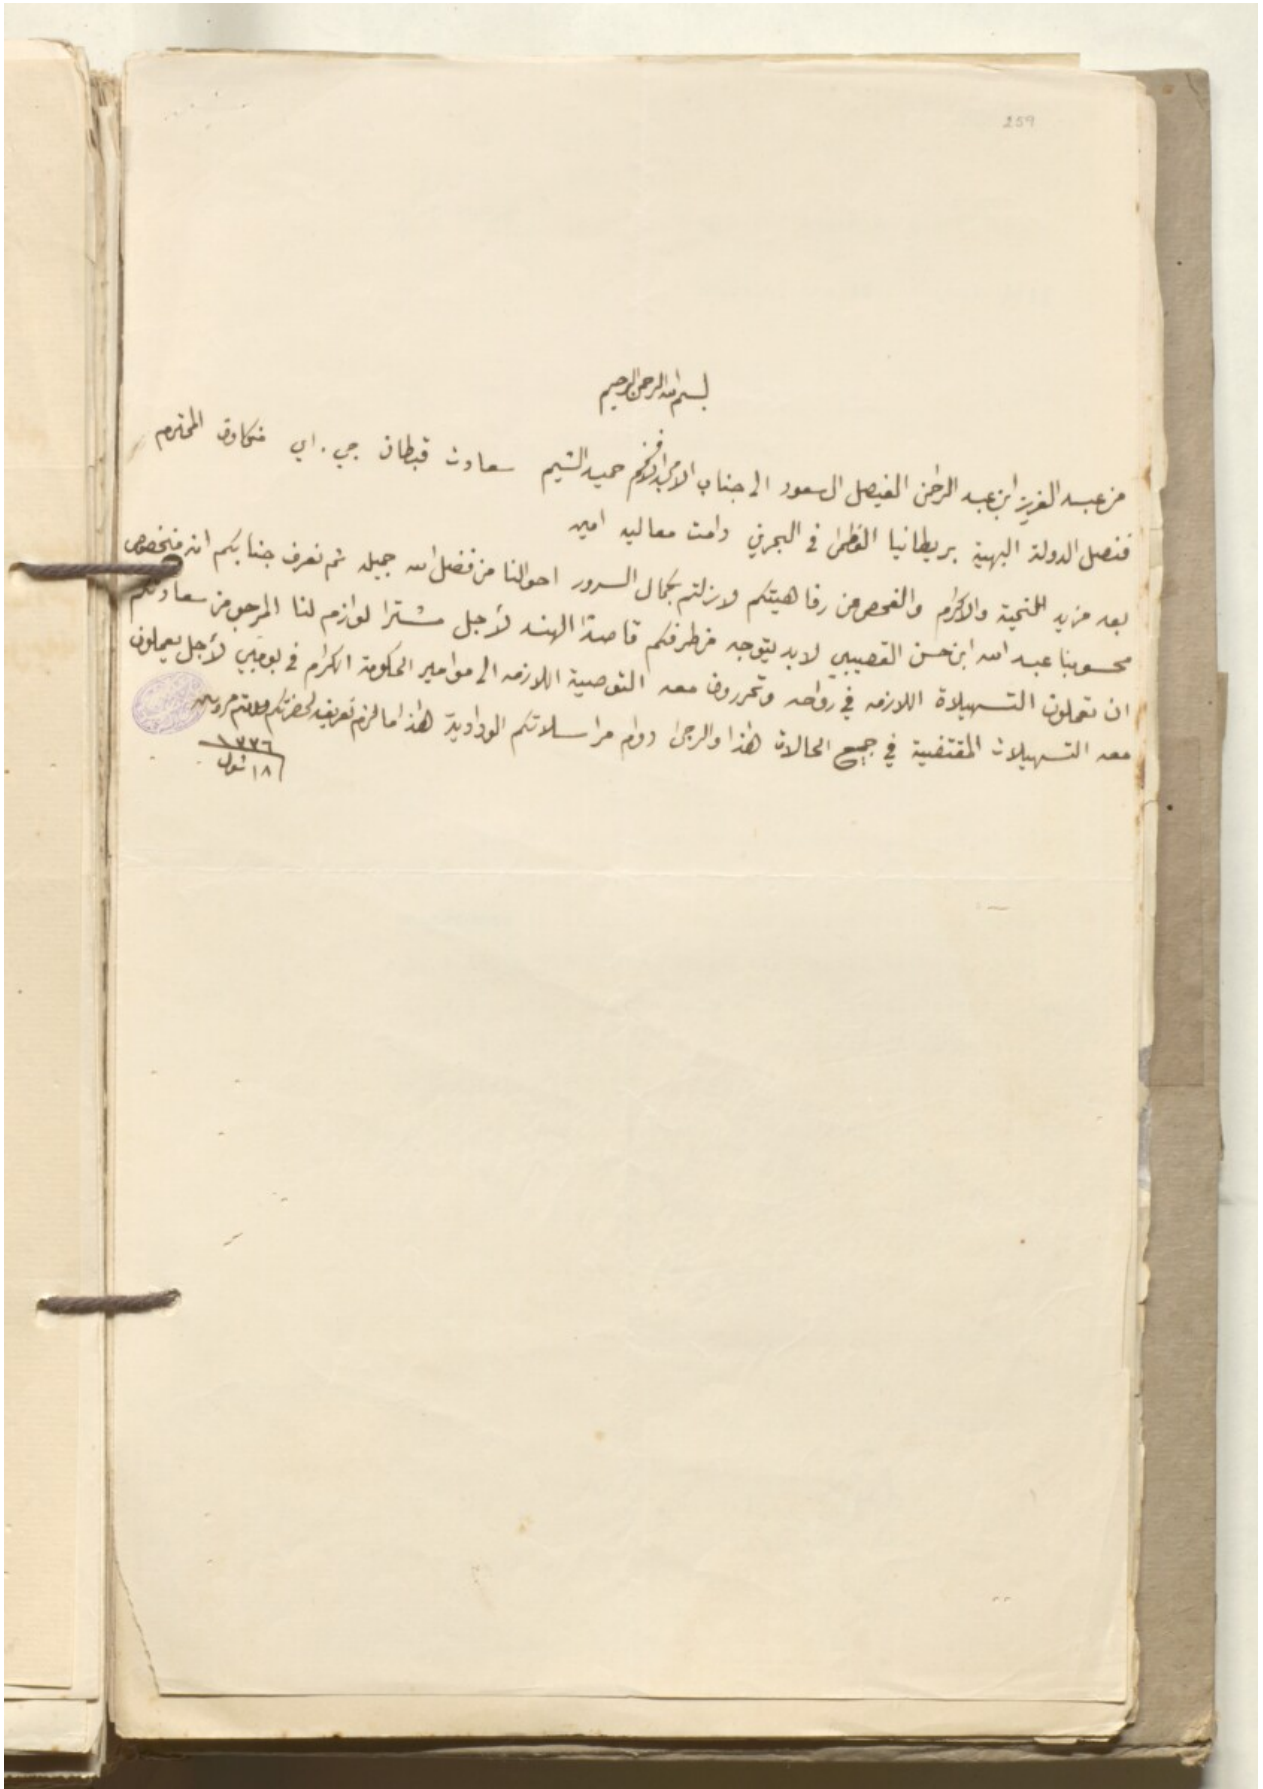 259
بسم الله الرحمن الرحيم
من عبد العزيز ابن عبد الرحمن الفيصل السعود الى جناب الامجد الافخم حميد الشيم سعادت قبطان جي . اي المحترم
قنصل الدولة البهية بريطانيا العظمى في البحرين دامت معاليه امين
بعد مزيد التحية والاكرام والفحص عن رفاهيتكم لازلتم بكمال السرور احوالنا من فضل الله جميله ثم نعرف جنابكم انه منخصوص
محسوبنا عبد الله ابن حسن القصيبي لابد يتوجه من طرفكم قاصدا الهند لأجل مشترا لوازم لنا المرجو من سعادتكم
ان تعملون التسهيلاة اللازمه في رواحه وتحررون معه التوصية اللازمه الى موامير الحكومة الكرام في بومبيي لأجل يعملون
معه التسهيلات المقتضية في جميع الحالات هذا والرجا دوام مراسلاتكم الودادية هذا ما لزم تعريفه لحضرتكم ودمتم محروسين
١٣٣٦
١٨ شوال